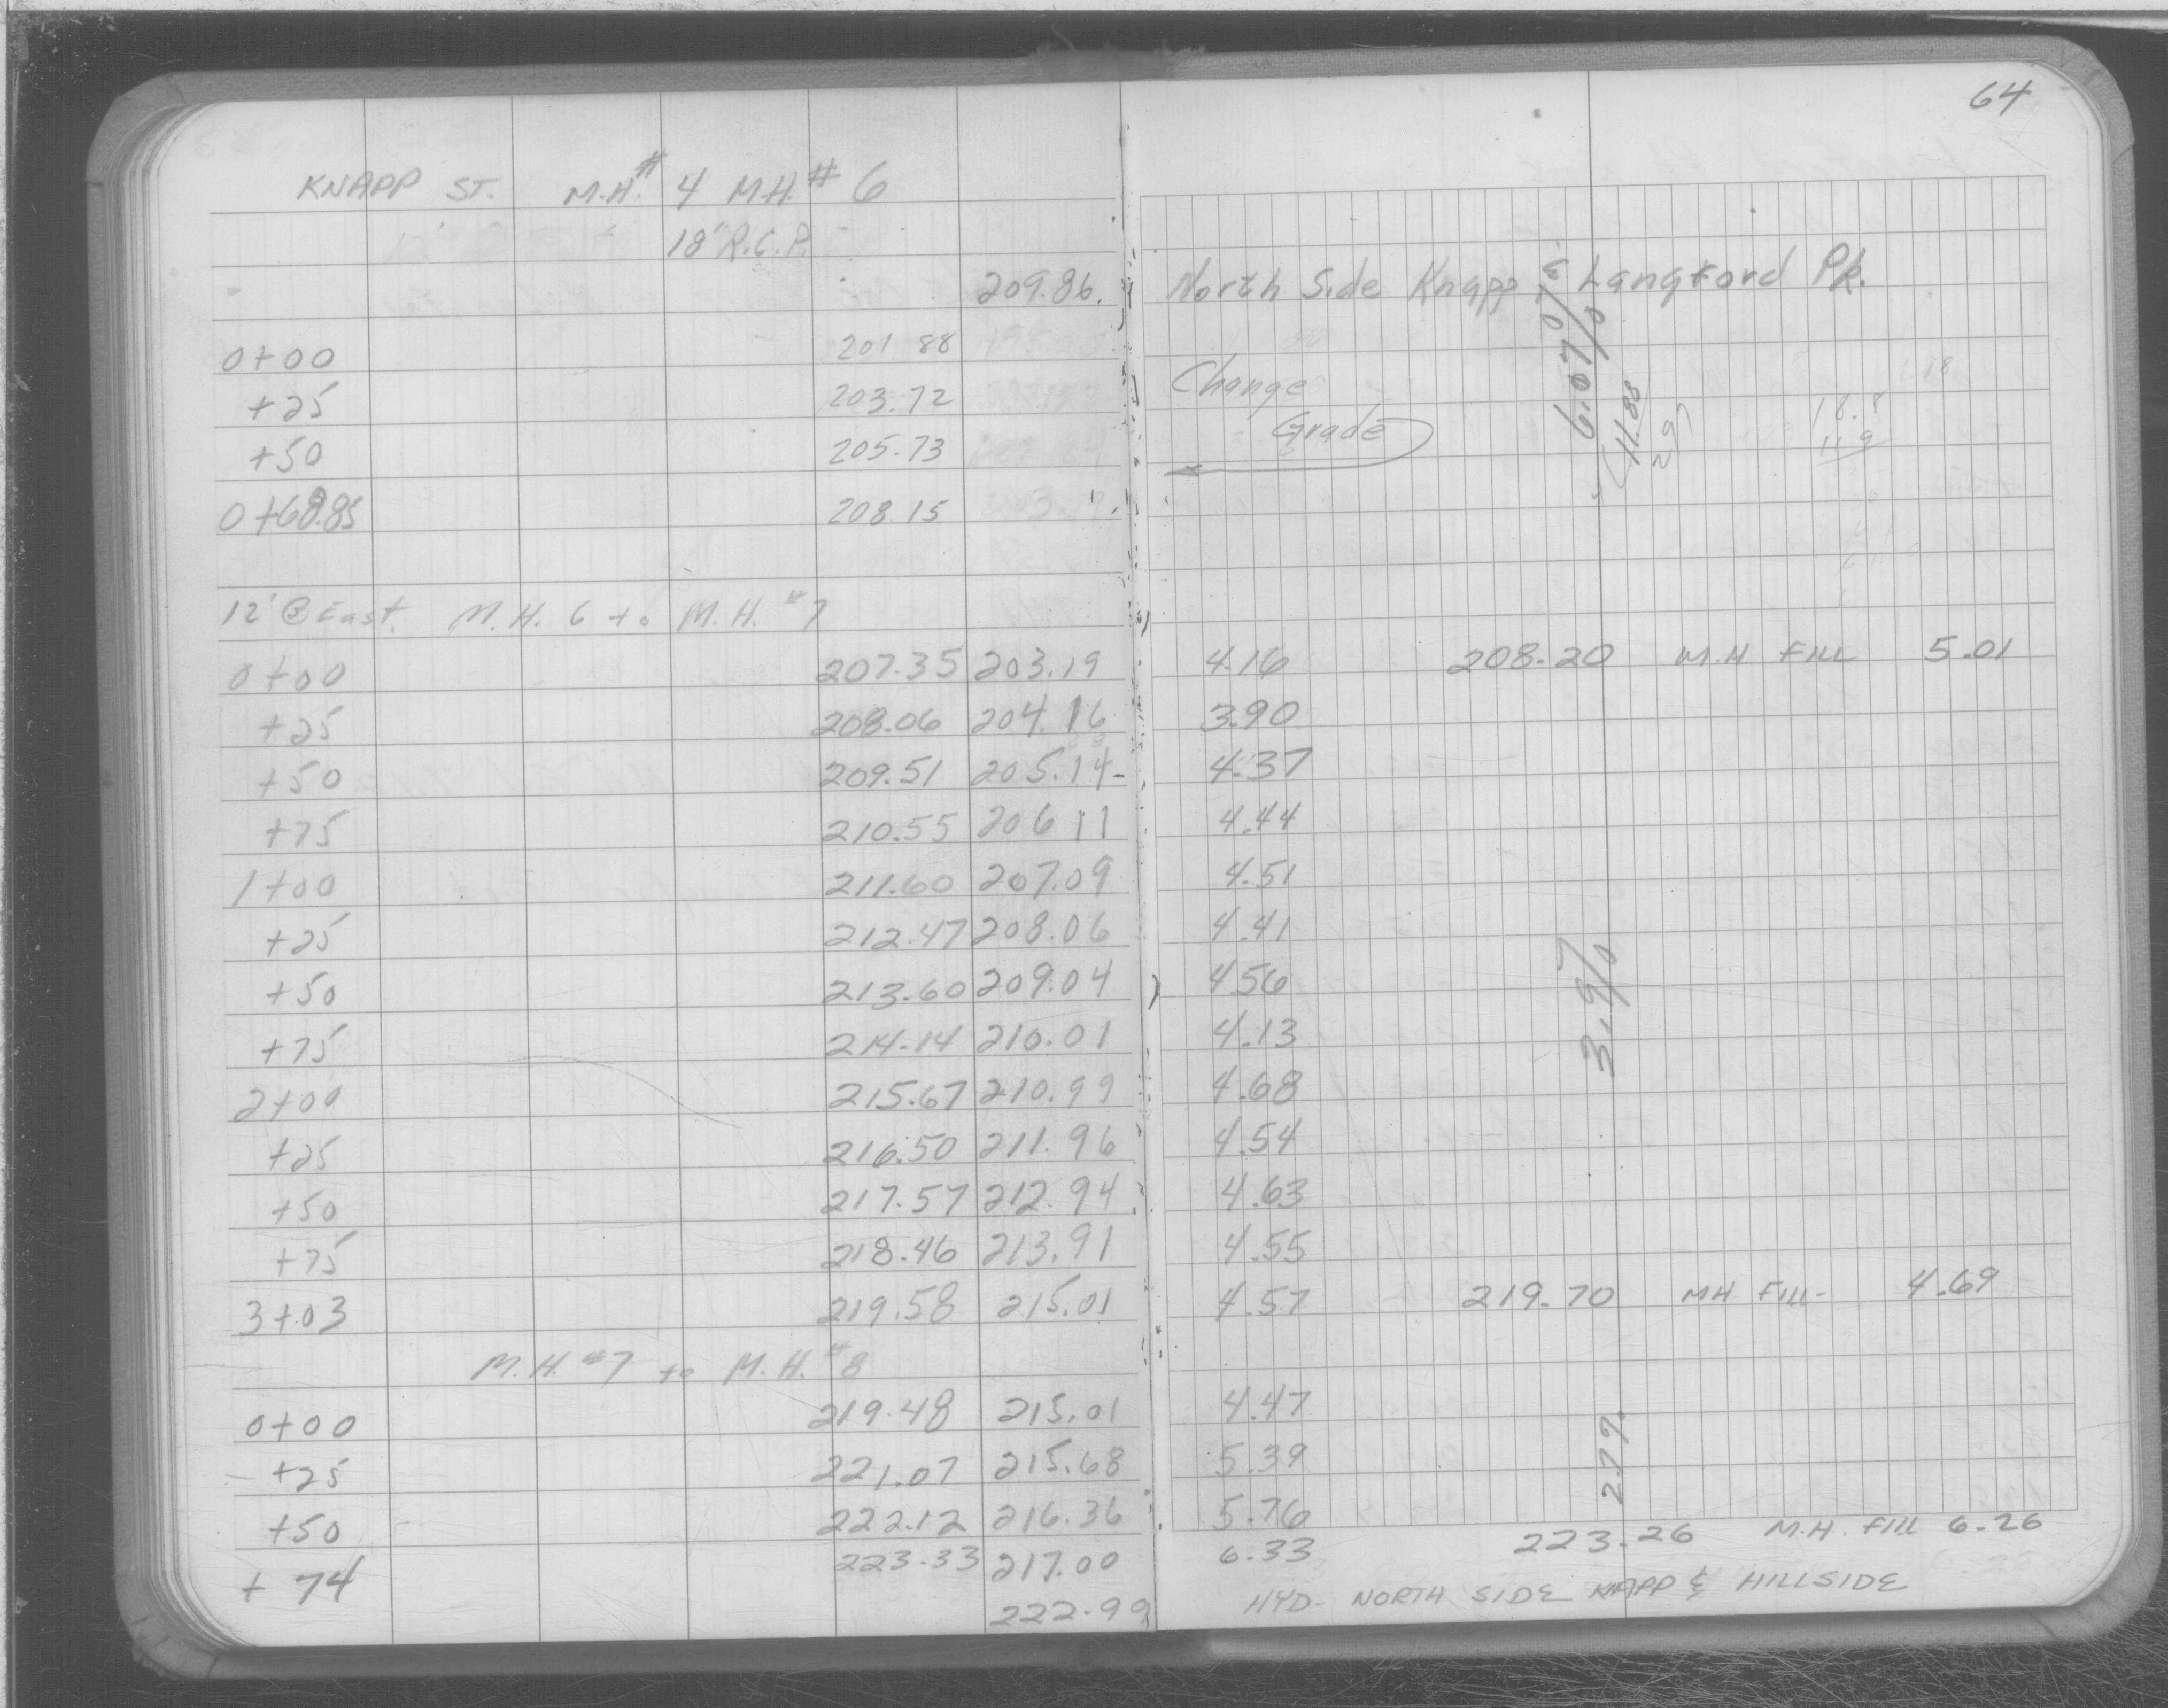 64
KNAPP ST. M.H.# 4 M.H.# 6
18" R.C.P.
209.86 North Side Knapp & Langford Pk.
0+00 201 88
+25 203.72 Change
+50 205.73 Grade
0+68.85 208.15
6.07%
11.88
29
18.8
11.9
12' @ East. M.H. 6 to M.H. #7
0+00 207.35 203.19 4.16 208.20 M.H FILL 5.01
+25 208.06 204.16 3.90
+50 209.51 205.14 4.37
+75 210.55 206 11 4.44
1+00 211.60 207.09 4.51
+25 212.47 208.06 4.41
+50 213.60 209.04 4.56
+75 214.14 210.01 4.13
2+00 215.67 210.99 4.68
+25 216.50 211.96 4.54
+50 217.57 212.94 4.63
+75 218.46 213.91 4.55
3+03 219.58 215.01 4.57 219.70 MH FILL- 4.69
3.9%
M.H. #7 to M.H. #8
0+00 219.48 215.01 4.47
+25 221.07 215.68 5.39
+50 222.12 216.36 5.76
+74 223.33 217.00 6.33 223.26 M.H. FILL 6.26
2.7%
222.99 HYD- NORTH SIDE KNAPP & HILLSIDE